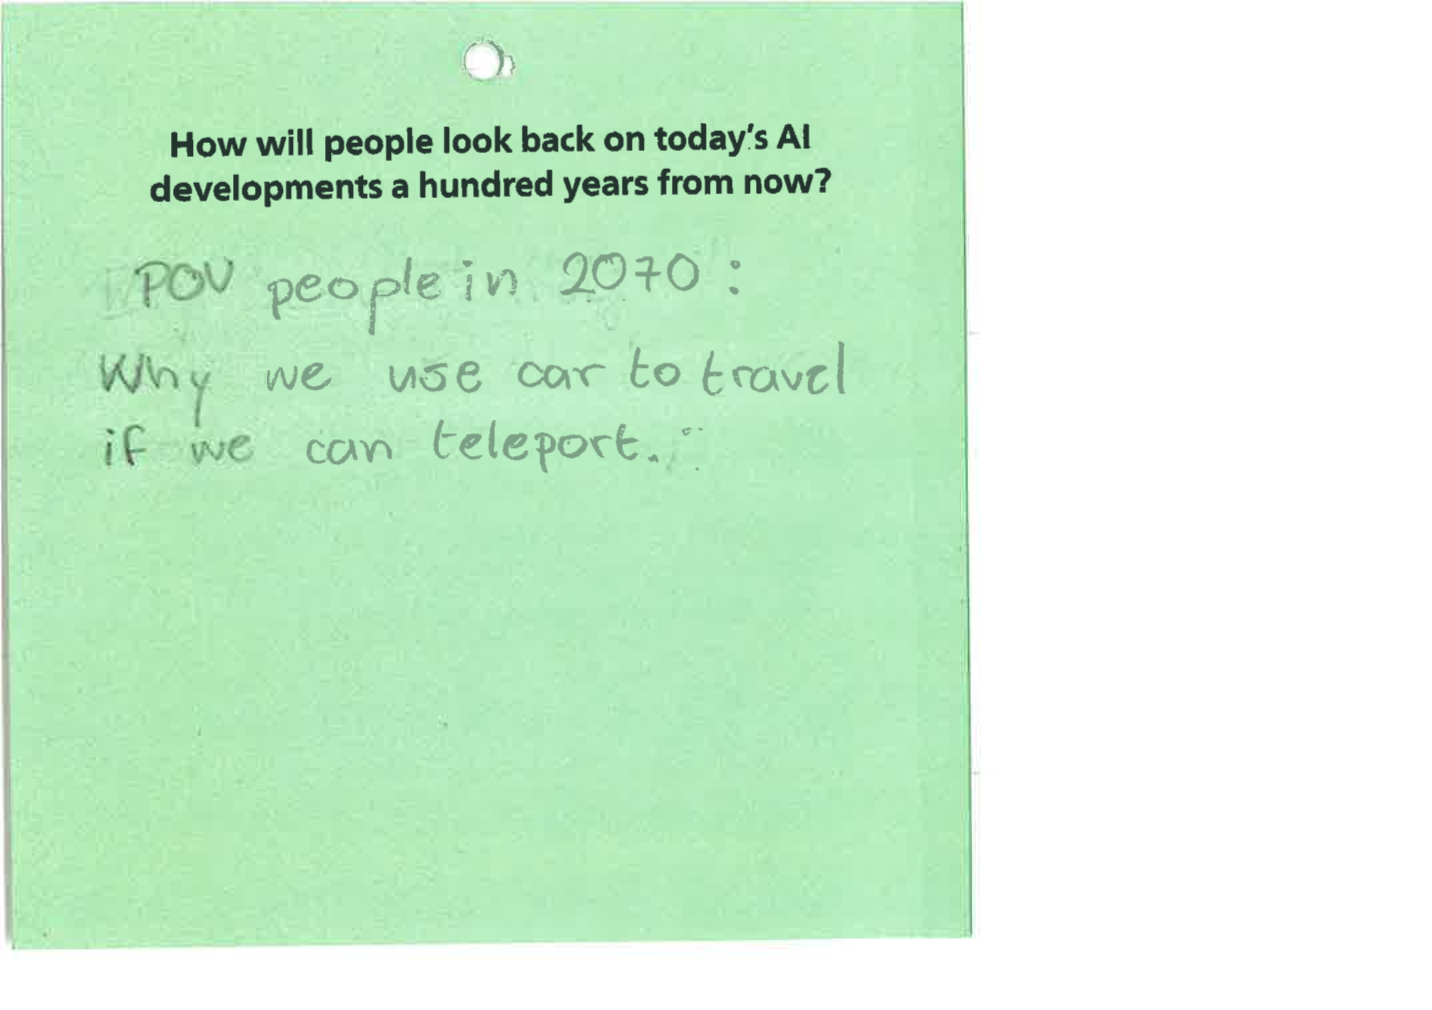 How will people look back on today's AI
developments a hundred years from now?
POV people in 2070:
Why we use car to travel
if we can teleport.